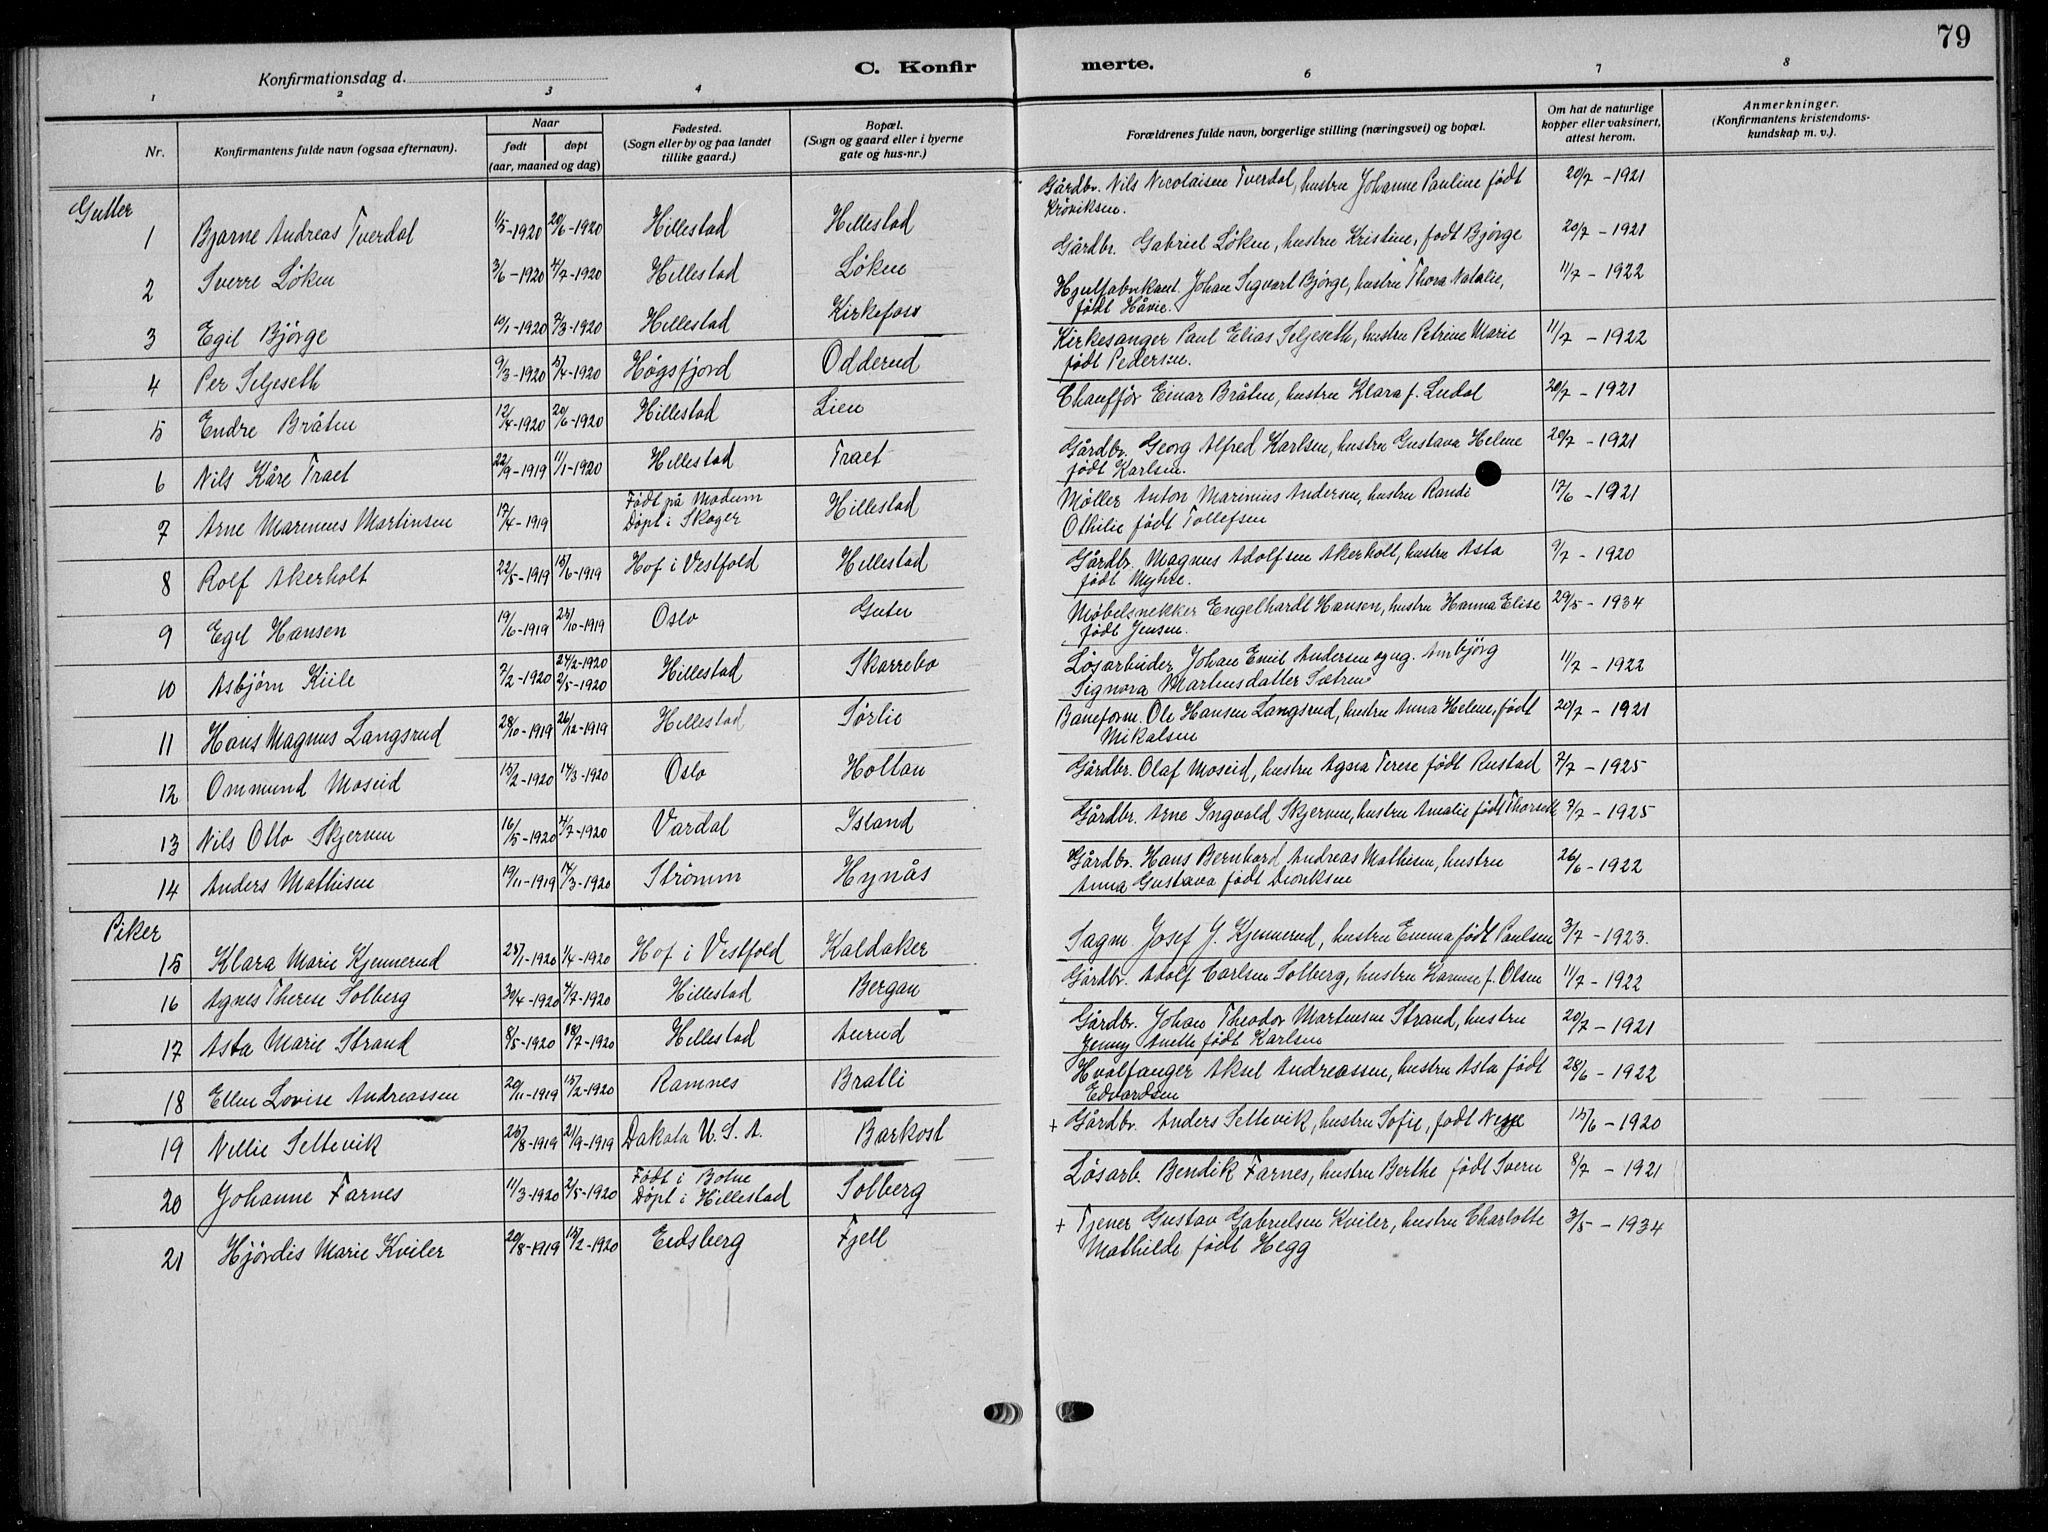 79
C. Konfirmerte.
Konfirmationsdag d.
1 2 3 4 6 7 8
Nr.
Konfirmantens fulde navn (ogsaa efternavn).
Naar
født døpt
(aar, maaned og dag)
Fødested.
(Sogn eller by og paa landet
tillike gaard.)
Bopæl.
(Sogn og gaard eller i byerne
gate og hus-nr.)
Forældrenes fulde navn, borgerlige stilling (næringsvei) og bopæl.
Om hat de naturlige
kopper eller vaksinert,
attest herom.
Anmerkninger.
(Konfirmantens kristendoms-
kundskap m. v.).
Gutter
1 Bjarne Andreas Tverdal 1/5-1920 20/6-1920 Hillestad Hillestad Gårdbr. Nils Nicolaisen Tverdal, hustru Johanne Pauline født 20/7-1921
Kroviksen.
2 Sverre Løken 3/6-1920 4/7-1920 Hillestad Løken Gårdbr. Gabriel Løken, hustru Kristine, født Bjørge 20/7-1921
3 Egil Bjørge 10/1-1920 7/3-1920 Hillestad Kirkefoss Hjulfabrikant Johan Sigvart Bjørge, hustru Thora Natalie, 11/7-1922
født Håvie.
4 Per Seljeseth 9/3-1920 5/4-1920 Høgsfjord Odderud Kirkesanger Paul Elias Seljeseth, hustru Petrine Marie 11/7-1922
født Pedersen.
5 Endre Bråten 12/4-1920 20/6-1920 Hillestad Lien Chauffør Einar Bråten, hustru Klara f. 20/7-1921
6 Nils Kåre Traet 22/9-1919 11/1-1920 Hillestad Traet Gårdbr. Georg Alfred Karlsen, hustru Gustava Helene 20/7-1921
født Karlsen.
7 Arne Marenius Martinsen 17/4-1919 Født på Modum Hillestad Møller Anton Marinius Andersen, hustru Randi 17/6-1921
Døpt i Skoger Othilie født Tollefsen
8 Rolf Akerholt 22/5-1919 15/6-1919 Hof i Vestfold Hillestad Gårdbr. Magnus Adolfsen Akerholt, hustru Asta 9/7-1920
født Myhre.
9 Egil Hansen 19/6-1919 23/10-1919 Oslo Guten Møbelsnekker Engelhardt Hansen, hustru Hanna Elise 29/5-1934
født Jensen.
24/2-1920
10 Asbjørn Kiile 7/2-1920 2/5-1920 Hillestad Skarrebo Løsarbeider Johan Emil Andersen og ug. Arnbjørg 11/7-1922
Signora Martinsdatter Sætren
11 Hans Magnus Langsrud 28/10-1919 26/12-1919 Hillestad Sørlie Baneform. Ole Hansen Langsrud, hustru Anna Helene, født 20/7-1921
Mikalsen
12 Ommund Moseid 15/2-1920 14/3-1920 Oslo Holtan Gårdbr. Olaf Moseid, hustru Agnea Terese født Rustad 7/7-1925
13 Nils Otto Skjerven 16/5-1920 4/7-1920 Vardal Island Gårdbr. Arne Ingvald Skjerven, hustru Amalie født Thorseth 7/7-1925
14 Anders Mathisen 19/11-1919 14/3-1920 Strømm Hynås Gårdbr. Hans Bernhard Andreas Mathisen, hustru 26/6-1922
Anna Gustava født Dioriksen
Piker
15 Klara Marie Kjennerud 25/1-1920 1/4-1920 Hof i Vestfold Kaldaker Sagm Josef J. Kjennerud, hustru Emma født Paulsen 3/7-1923.
16 Agnes Therese Solberg 30/4-1920 4/7-1920 Hillestad Bergan Gårdbr. Adolf Carlsen Solberg, hustru Karine f. Olsen 11/7-1922
17 Asta Marie Strand 8/5-1920 18/7-1920 Hillestad Aurud Gårdbr. Johan Theodor Martinsen Strand, hustru 20/7-1921
Jenny Anette født Karlsen
18 Ellen Lovise Andreassen 20/11-1919 15/2-1920 Ramnes Bratli Hvalfanger Aksel Andreassen, hustru Asta født 28/6-1922
Edvardsen
19 Nellie Settevik 25/8-1919 21/9-1919 Dakota U. S. A. Barkost + Gårdbr. Anders Settevik, hustru Sofie, født 15/6-1920
20 Johanne Farnes 11/3-1920 2/5-1920 Født i Botne Solberg Løsarb. Bendik Farnes, hustru Berthe født Sveen 8/7-1921
Døpt i Hillestad
21 Hjørdis Marie Kviler 20/8-1919 15/2-1920 Eidsberg Fjell + Tjener Gustav Gabrielsen Kviler, hustru Charlotte 3/5-1934
Mathilde født Hegg